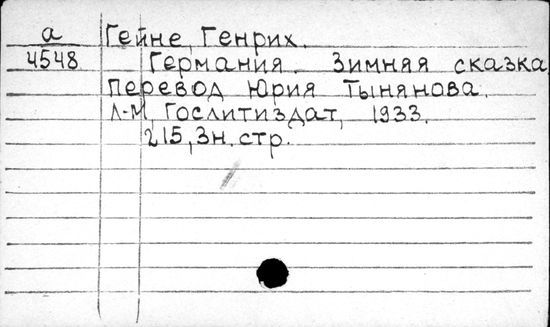 а Гейне, Генрих.
4548 Германия. Зимняя сказка
Перевод Юрия Тынянова.
Л-М, Гослитиздат, 1933.
215, 3н. стр.